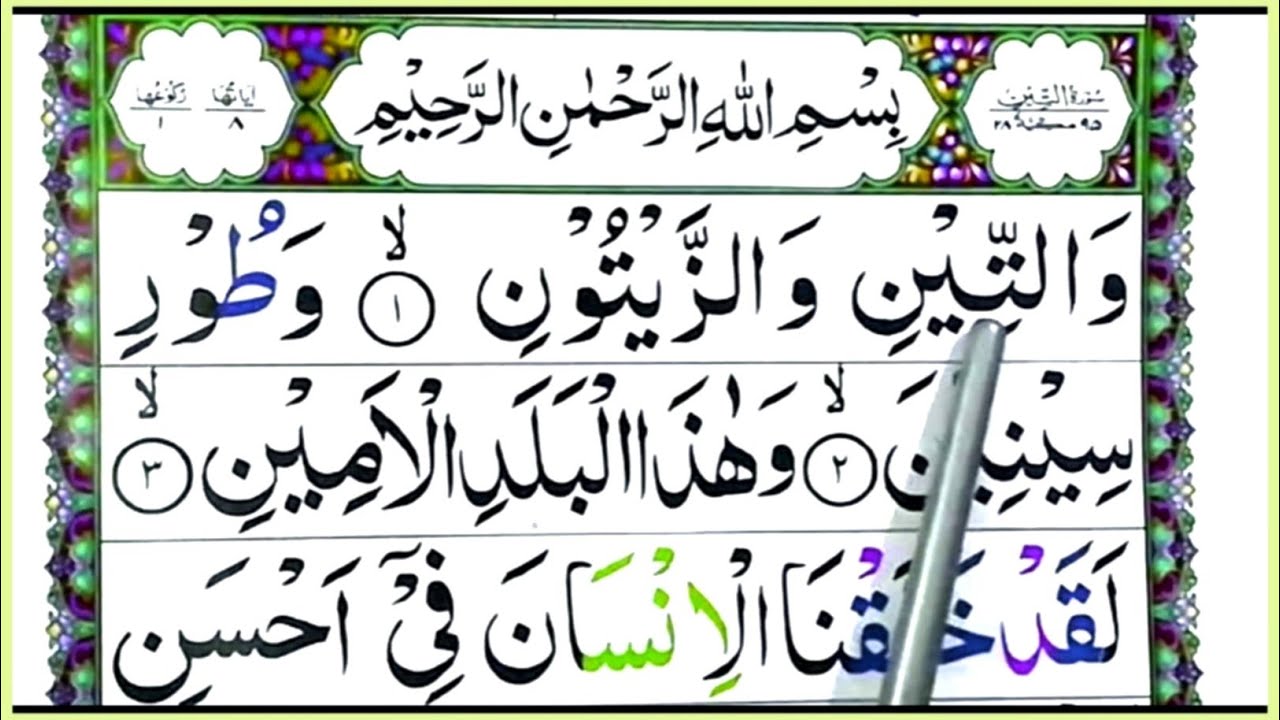 سُوْرَةُ التِّيْنِ
۹۵ مَكِّيَّةٌ ۲۸
بِسْمِ اللّٰهِ الرَّحْمٰنِ الرَّحِيْمِ
اٰيَاتُهَا ۸
رُكُوْعُهَا ۱
وَالتِّيْنِ وَالزَّيْتُوْنِ ۙ ۱ وَطُوْرِ
سِيْنِيْنَ ۙ ۲ وَهٰذَا الْبَلَدِ الْاَمِيْنِ ۙ ۳
لَقَدْ خَلَقْنَا الْاِنْسَانَ فِيْٓ اَحْسَنِ